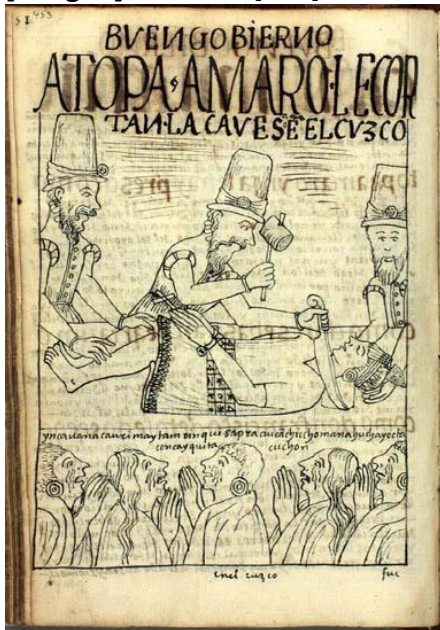 453
BVEN GOBIERNO
A TOPA AMARO LE COR
TAN LA CAVESA Ē EL CVZCO
ynca uana cauri maytam rinqui sapra aucāchiccho mana huchayocta
concayquita cuchon
en el cuzco
fue